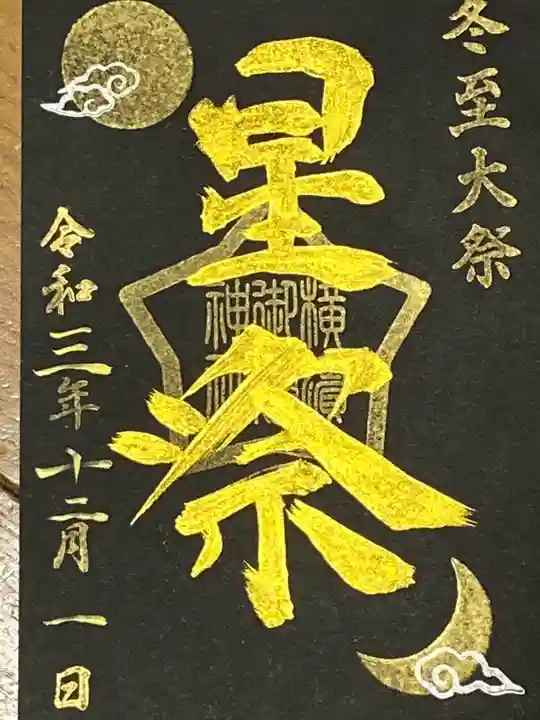 冬至大祭
星祭
横濱
御
神
令和三年十二月一日